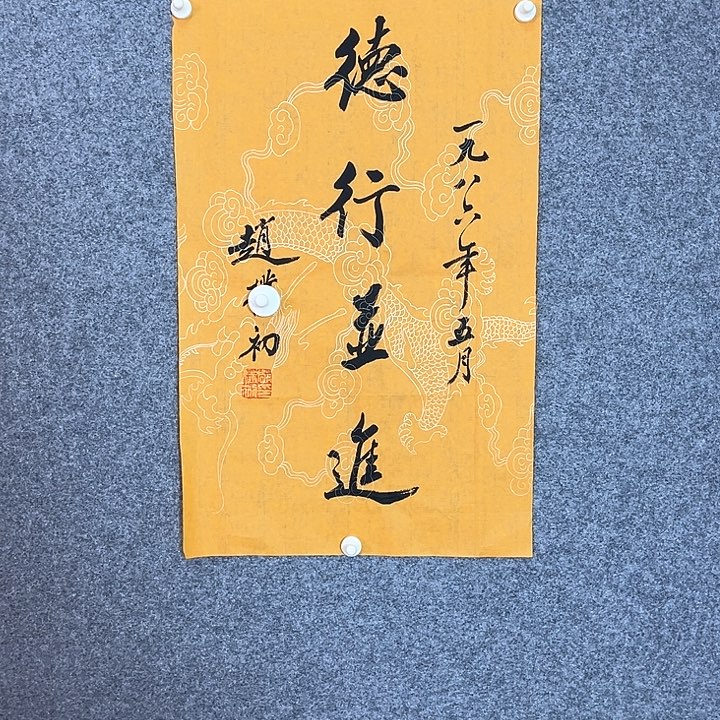 一九八六年五月
德行並進
趙樸初